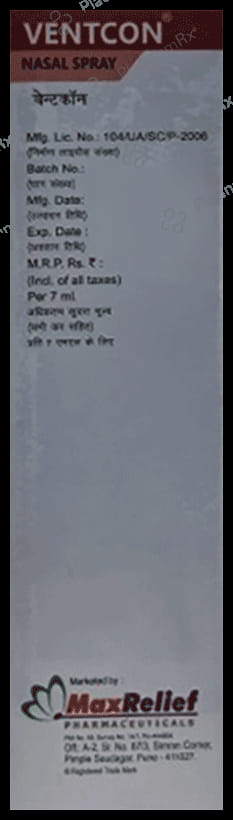 VENTCON®
NASAL SPRAY
वेन्टकॉन
Mfg. Lic. No.: 104/UA/SC/P-2006
(निर्माण लाइसेंस संख्या)
Batch No.:
(घान संख्या)
Mfg. Date:
(उत्पादन तिथि)
Exp. Date :
(अवसान तिथि)
M.R.P. Rs. ₹ :
(Incl. of all taxes)
Per 7 ml.
अधिकतम खुदरा मूल्य
(सभी कर सहित)
प्रति 7 एमएल के लिए
Marketed by :
MaxRelief
PHARMACEUTICALS
Off.: A-2, Sr. No. 87/3, Simran Corner,
Pimple Saudagar, Pune - 411027.
® Registered Trade Mark